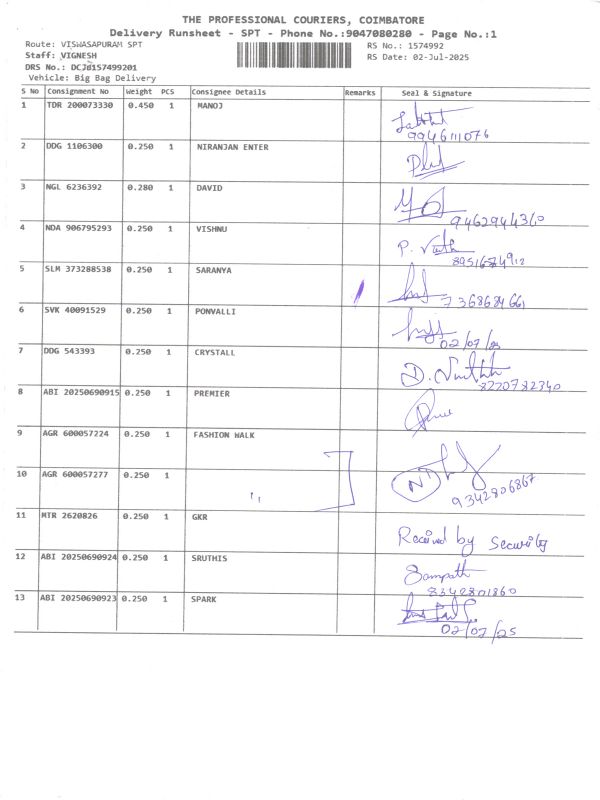 THE PROFESSIONAL COURIERS, COIMBATORE
Delivery Runsheet - SPT - Phone No.:9047080280 - Page No.:1
Route: VISWASAPURAM SPT
RS No.: 1574992
Staff: VIGNESH
RS Date: 02-Jul-2025
DRS No.: DCJB157499201
Vehicle: Big Bag Delivery
S No Consignment No Weight PCS Consignee Details Remarks Seal & Signature
1 TDR 200073330 0.450 1 MANOJ
9946111076
2 DDG 1106300 0.250 1 NIRANJAN ENTER
3 NGL 6236392 0.280 1 DAVID
9462944360
4 NDA 906795293 0.250 1 VISHNU
5 SLM 373288538 0.250 1 SARANYA
7368684661
6 SVK 40091529 0.250 1 PONVALLI
02/07/25
7 DDG 543393 0.250 1 CRYSTALL
8220782340
8 ABI 20250690915 0.250 1 PREMIER
9 AGR 600057224 0.250 1 FASHION WALK
10 AGR 600057277 0.250 1
9342806867
11 MTR 2620826 0.250 1 GKR
Received by Security
12 ABI 20250690924 0.250 1 SRUTHIS
Sampath
8342801860
13 ABI 20250690923 0.250 1 SPARK
02/07/25